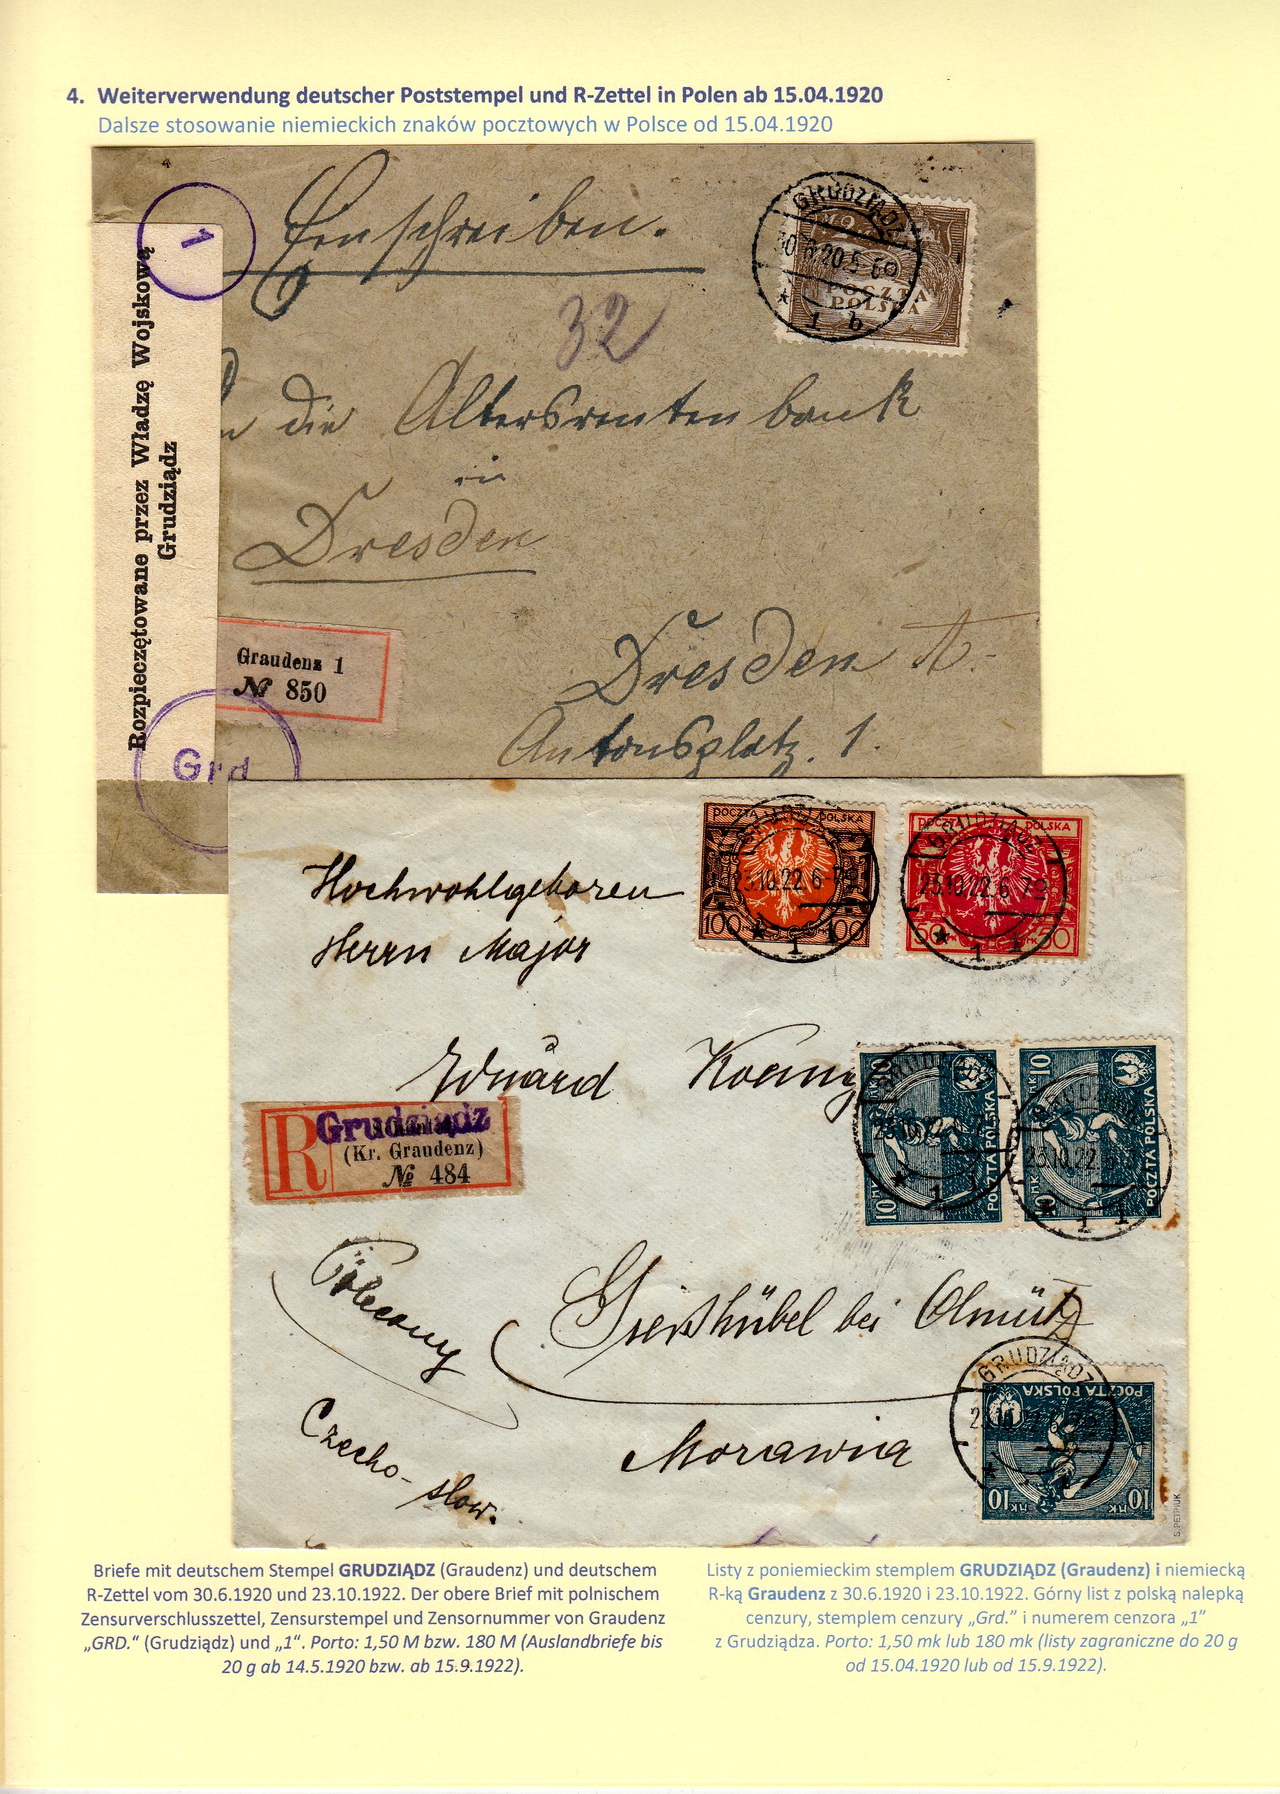 4. Weiterverwendung deutscher Poststempel und R-Zettel in Polen ab 15.04.1920
Dalsze stosowanie niemieckich znaków pocztowych w Polsce od 15.04.1920
1
Einschreiben.
GRUDZIĄDZ
30.6.20.5-6
1 b
POCZTA
POLSKA
32
Rozpieczętowane przez Władzę Wojskową
Grudziądz
An die Altersrentenbank
in
Dresden
Dresden A.-
Antonsplatz. 1.
Graudenz 1
№ 850
Grd
POCZTA POLSKA
100 100
23.10.22.6-7
1
POCZTA POLSKA
GRUDZIĄDZ
50 MK 50
23.10.22.6-7
1
Hochwohlgeboren
Herrn Major
Eduard
R
Grudziądz
(Kr. Graudenz)
№ 484
10 MK 10
POCZTA POLSKA
GRUDZIĄDZ
23.10.22
1
10 MK 10
POCZTA POLSKA
23.10.22.6-7
1
Giesshübel bei Olmütz
Morawia
Czecho-
slow.
GRUDZIĄDZ
POCZTA POLSKA
10 MK 10
S.PETRIUK
Briefe mit deutschem Stempel GRUDZIĄDZ (Graudenz) und deutschem
R-Zettel vom 30.6.1920 und 23.10.1922. Der obere Brief mit polnischem
Zensurverschlusszettel, Zensurstempel und Zensornummer von Graudenz
„GRD.“ (Grudziądz) und „1“. Porto: 1,50 M bzw. 180 M (Auslandbriefe bis
20 g ab 14.5.1920 bzw. ab 15.9.1922).
Listy z poniemieckim stemplem GRUDZIĄDZ (Graudenz) i niemiecką
R-ką Graudenz z 30.6.1920 i 23.10.1922. Górny list z polską nalepką
cenzury, stemplem cenzury „Grd.” i numerem cenzora „1”
z Grudziądza. Porto: 1,50 mk lub 180 mk (listy zagraniczne do 20 g
od 15.04.1920 lub od 15.9.1922).